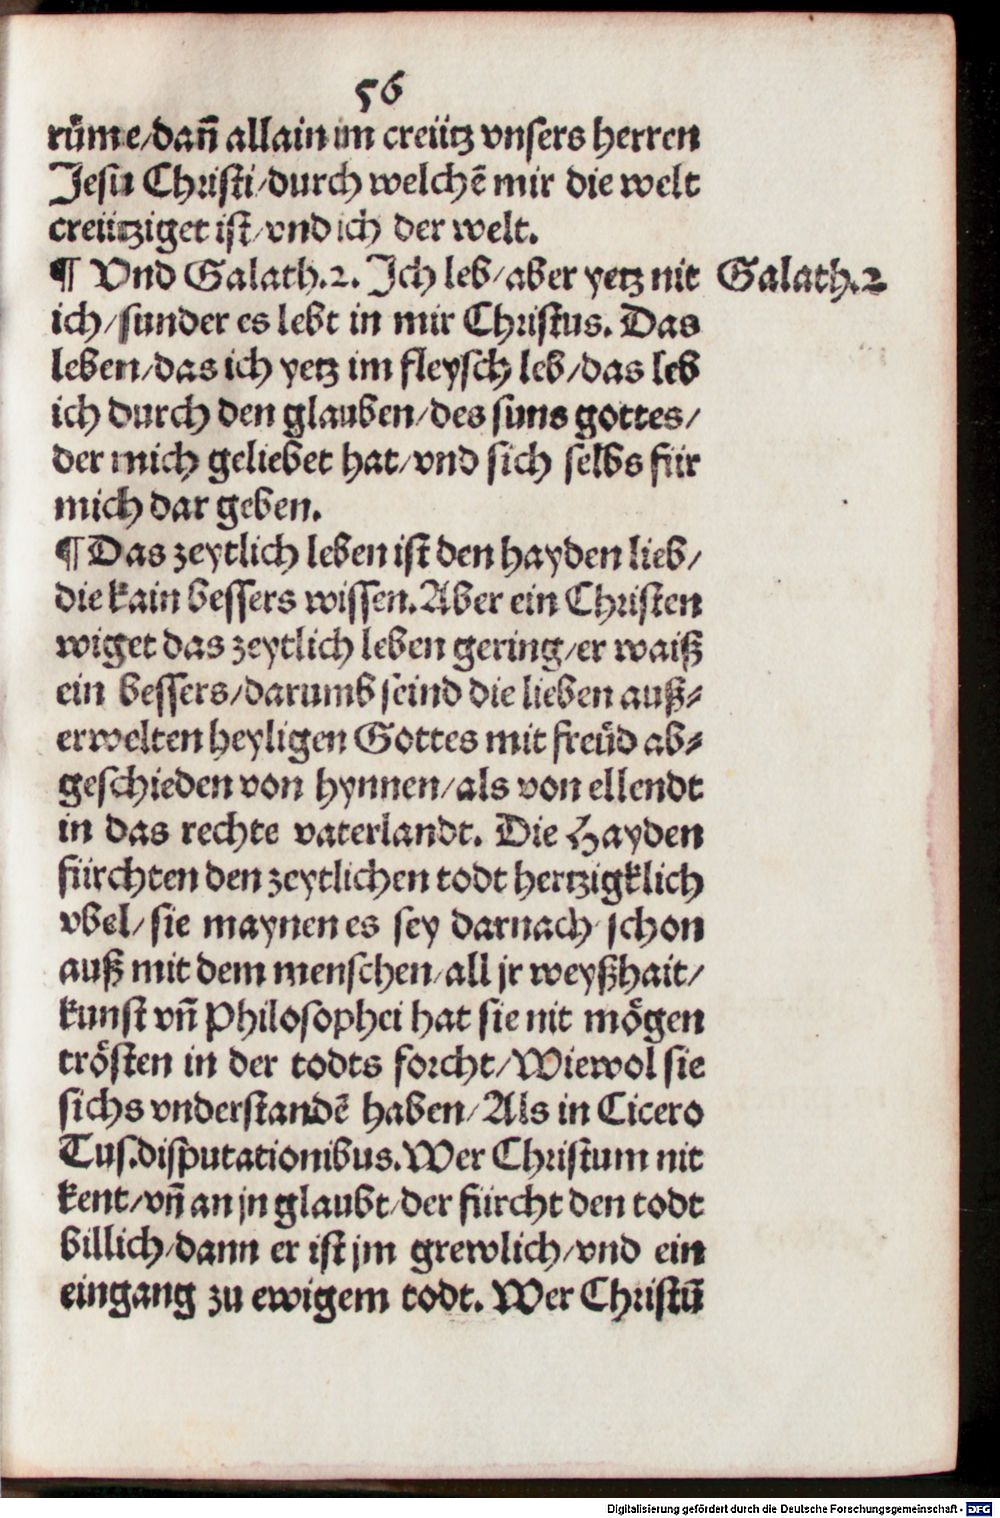 56
rüme/dañ allain im creütz vnsers herren
Jesu Christi/durch welchē mir die welt
creütziget ist/vnd ich der welt.
¶ Vnd Galath.2. Ich leb/aber yetz nit
Galath.2
ich/sunder es lebt in mir Christus. Das
leben/das ich yetz im fleysch leb/das leb
ich durch den glauben/des suns gottes/
der mich geliebet hat/vnd sich selbs für
mich dar geben.
¶ Das zeytlich leben ist den hayden lieb/
die kain bessers wissen. Aber ein Christen
wiget das zeytlich leben gering/er waiß
ein bessers/darumb seind die lieben auß⸗
erwelten heyligen Gottes mit freüd ab⸗
geschieden von hynnen/als von ellendt
in das rechte vaterlandt. Die Hayden
fürchten den zeytlichen todt hertzigklich
vbel/sie maynen es sey darnach schon
auß mit dem menschen/all jr weyßhait/
kunst vñ Philosophei hat sie nit mögen
trösten in der todts forcht/Wiewol sie
sichs vnderstandē haben/Als in Cicero
Tus.disputationibus. Wer Christum nit
kent/vñ an jn glaubt/der fürcht den todt
billich/dann er ist jm grewlich/vnd ein
eingang zu ewigem todt. Wer Christū
Digitalisierung gefördert durch die Deutsche Forschungsgemeinschaft - DFG